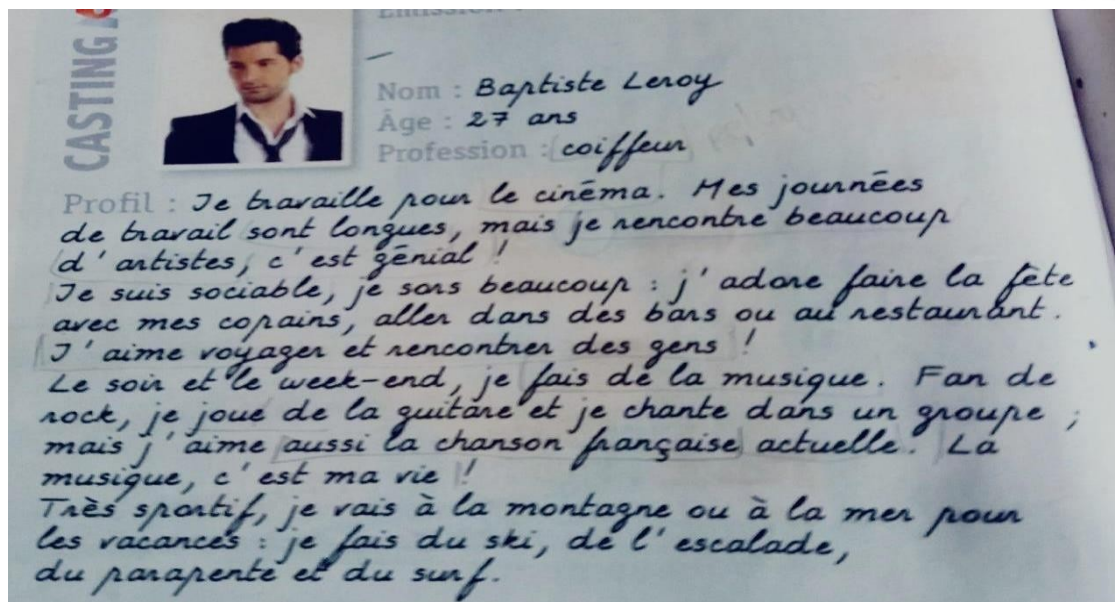 CASTING
Émission :
Nom : Baptiste Leroy
Âge : 27 ans
Profession : coiffeur
Profil : Je travaille pour le cinéma. Mes journées
de travail sont longues, mais je rencontre beaucoup
d'artistes, c'est génial !
Je suis sociable, je sors beaucoup : j'adore faire la fête
avec mes copains, aller dans des bars ou au restaurant.
J'aime voyager et rencontrer des gens !
Le soir et le week-end, je fais de la musique. Fan de
rock, je joue de la guitare et je chante dans un groupe ;
mais j'aime aussi la chanson française actuelle. La
musique, c'est ma vie !
Très sportif, je vais à la montagne ou à la mer pour
les vacances : je fais du ski, de l'escalade,
du parapente et du surf.